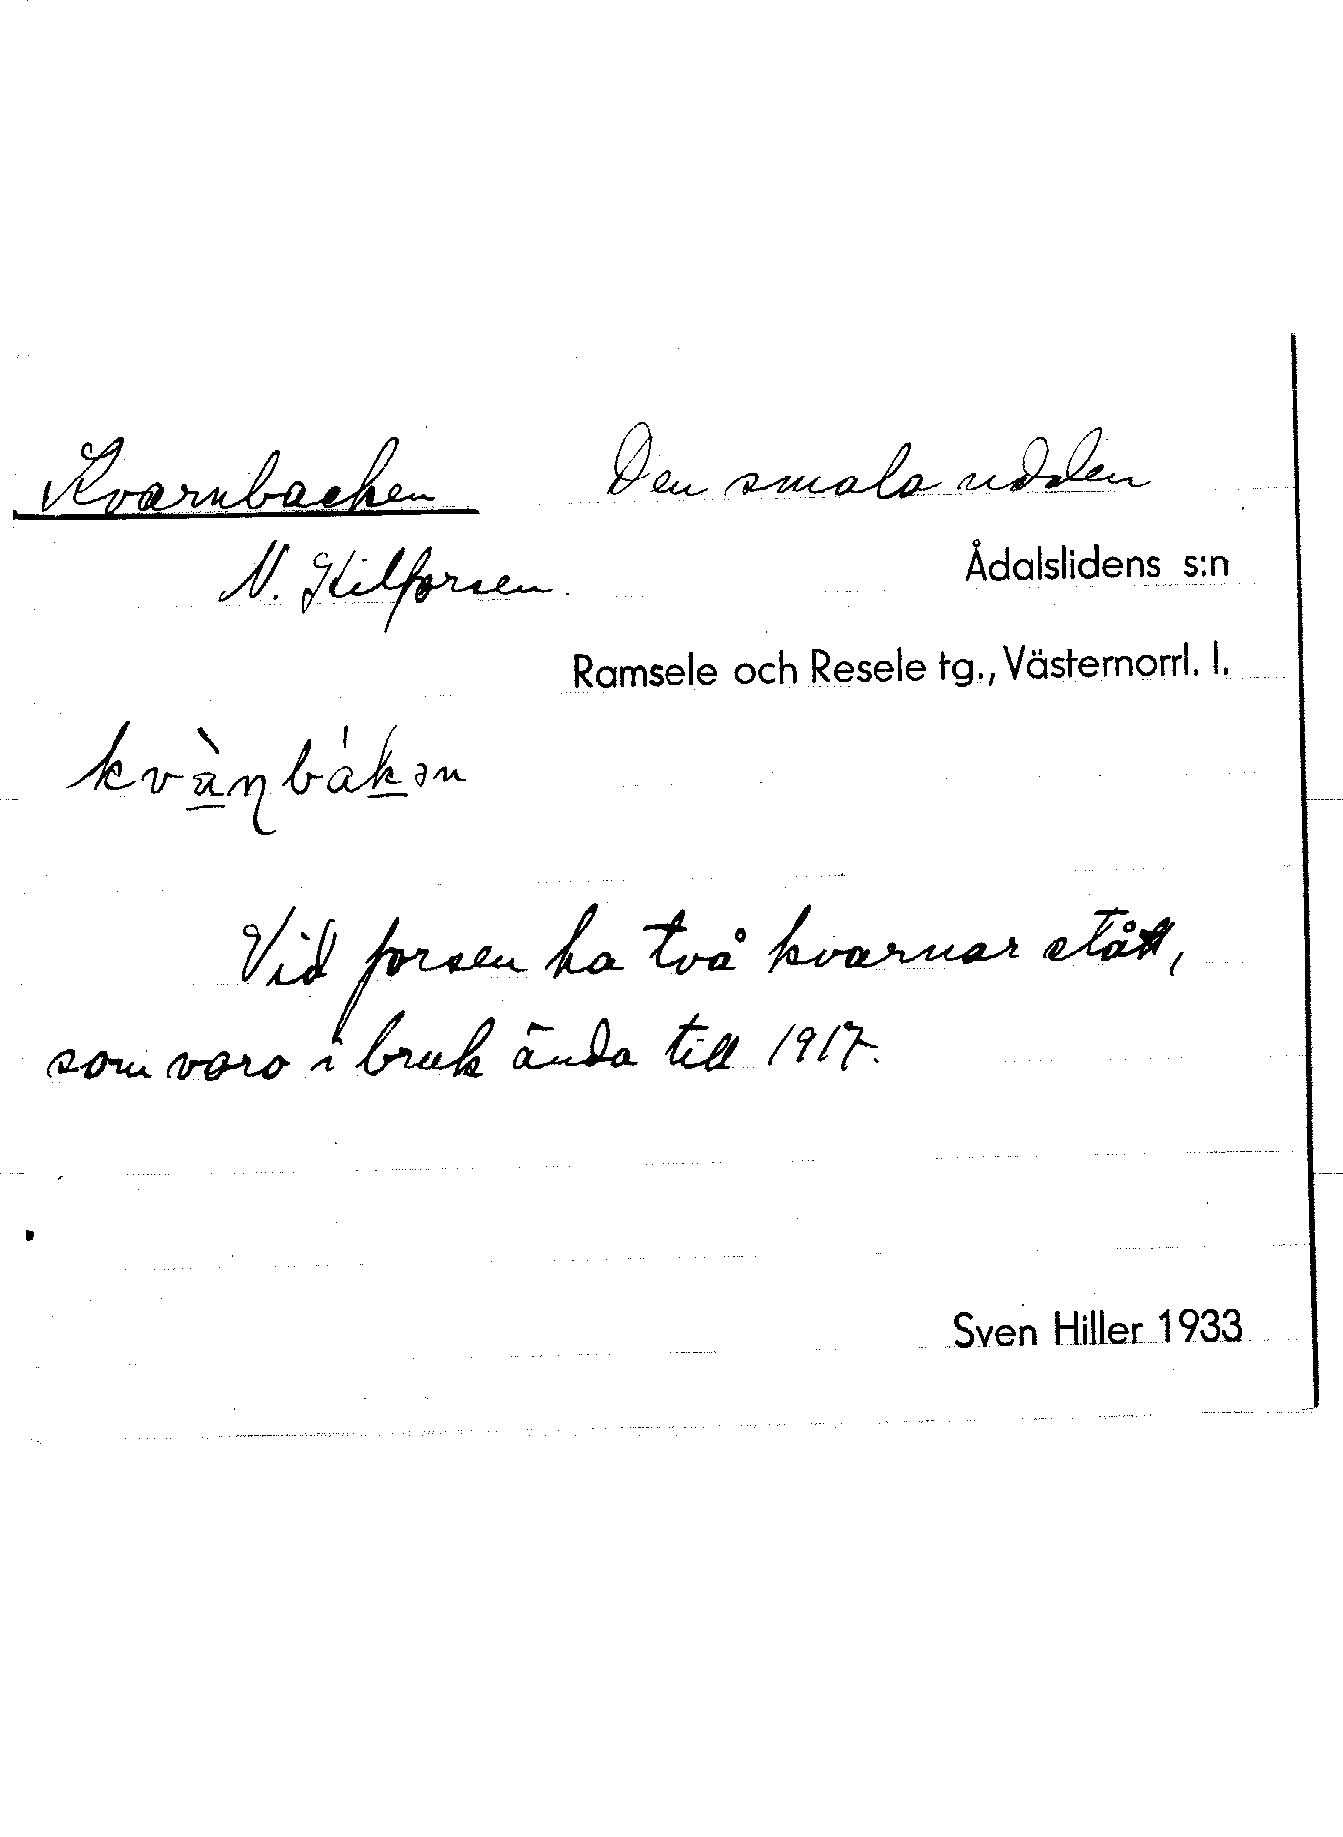 Kvarnbacken Den smala udden
N. Kilforsen. Ådalslidens s:n
Ramsele och Resele tg., Västernorrl. l.
kvànbákən
Vid forsen ha två kvarnar stått,
som voro i bruk ända till 1917.
Sven Hiller 1933